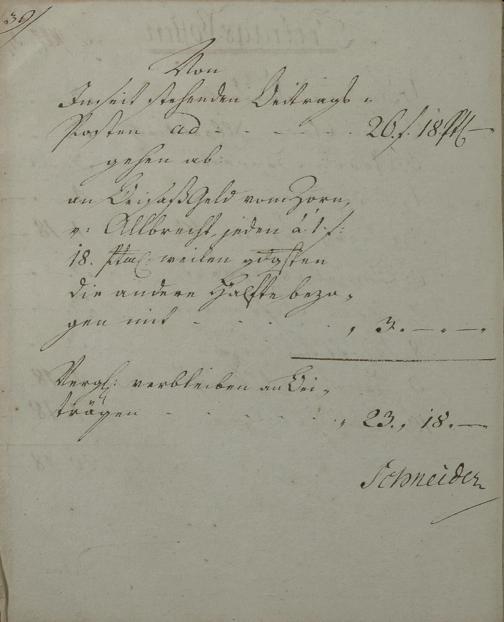 39
Von
Jenseit stehenden Beitrags=
Posten ad - - - . 26. f. 18
gehen ab
an Beisaß Geld vom Zorn,
u: Allbrecht, jeden á 1. f:
18. weilen
die andere Hälfte bezo=
gen mit - - - „ 3. — „ —
verbleiben an Bei=
trägen - - - „ 23. „ 18. —
Schneider